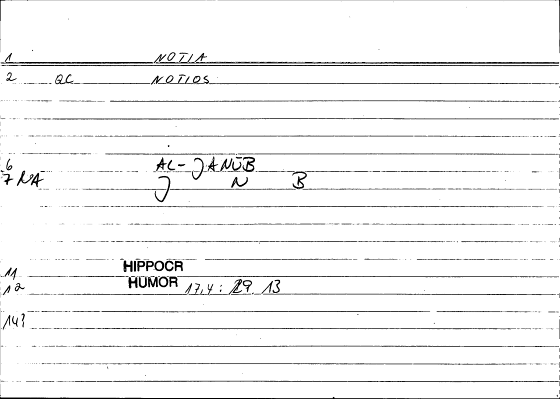 1 NOTIA
2 QC NOTIOS
6 AL-JANŪB
7 NA J N B
11 HIPPOCR
12 HUMOR 17,4 : 29 13
14?